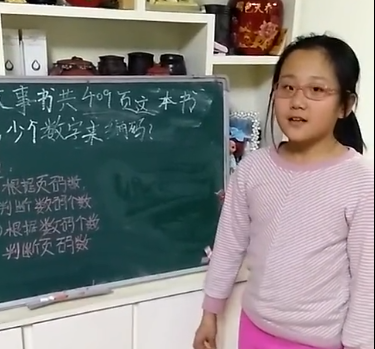 事书共409页这本书
少个数字来编码?
根据页码数,
判断数码个数
根据数码个数
判断页码数